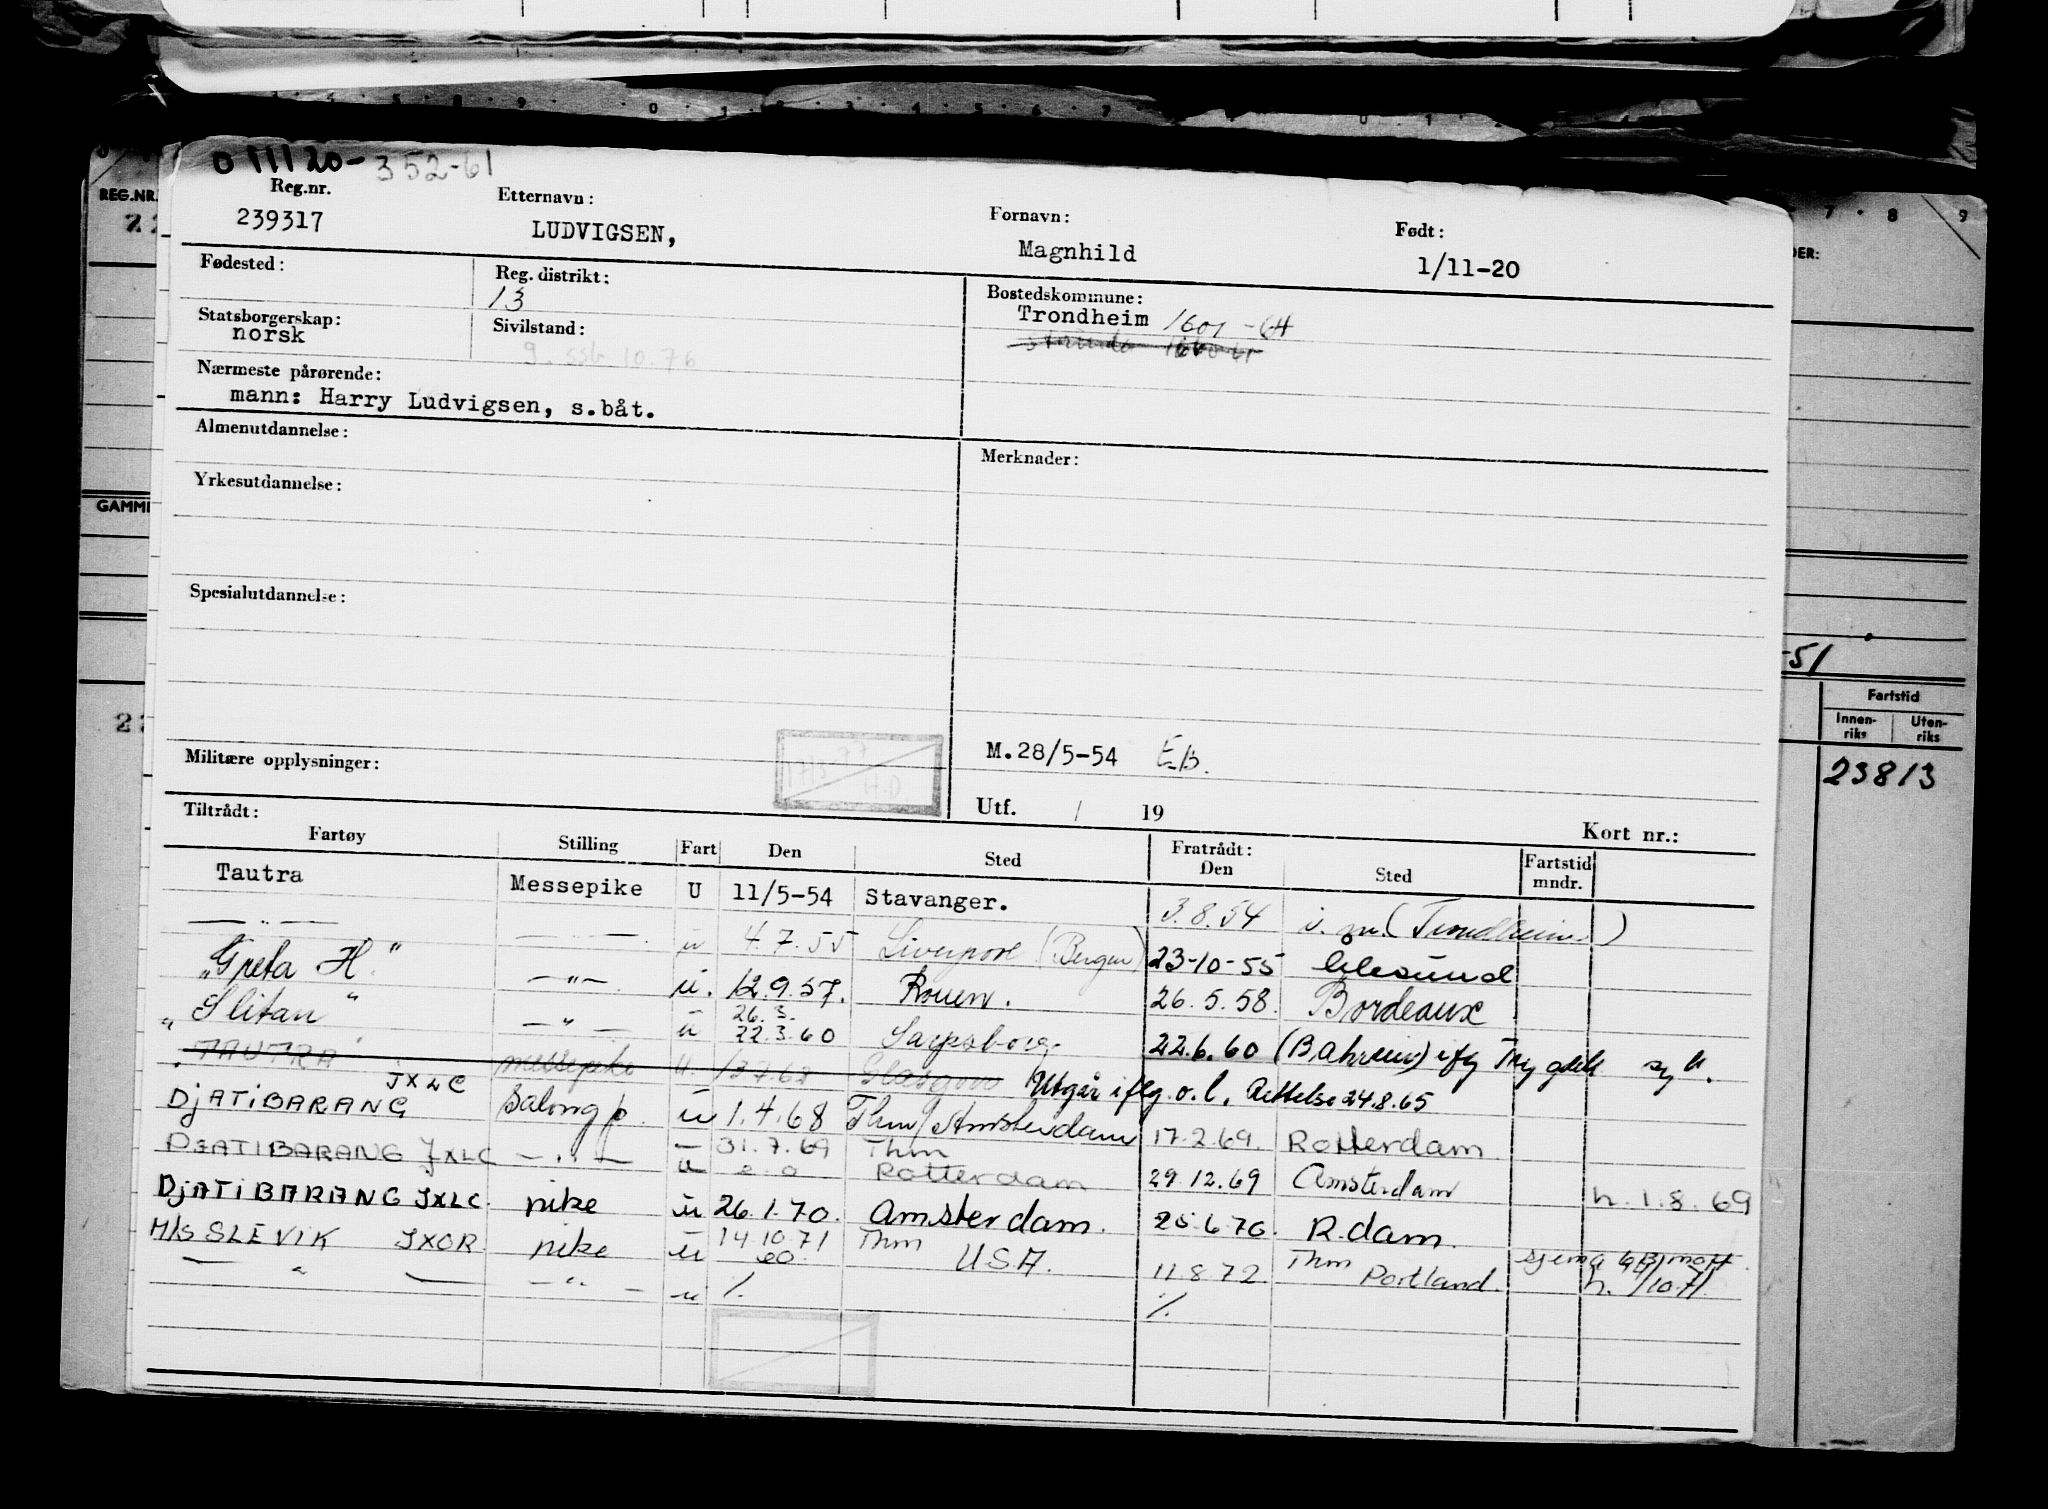 011120-352-61
REG.NR.
Reg.nr.
239317
Etternavn:
LUDVIGSEN,
Fornavn:
Magnhild
Født:
1/11-20
Fødested:
Reg. distrikt:
13
Bostedskommune:
Trondheim 1601-64
Statsborgerskap:
norsk
Sivilstand:
g. ssb 10.76
Nærmeste pårørende:
mann: Harry Ludvigsen, s.båt.
Almenutdannelse:
Merknader:
Yrkesutdannelse:
GAMM
Spesialutdannelse:
-51
Fartstid
Innen-riks Uten-riks
23813
Militære opplysninger:
17/3-77
H.D.
M.28/5-54 E.B.
Utf. / 19
Kort nr.:
Tiltrådt:
Fartøy Stilling Fart Den Sted Fratrådt: Den Sted Fartstid mndr.
Tautra Messepike U 11/5-54 Stavanger. 3.8.54 i. m. (Trondheim)
— " — — — u 4.7.55 Liverpool (Bergen) 23-10-55 Ålesund
"Greta H." — " — u. 12.9.57. Rouen. 26.5.58. Bordeaux
"Slitan" — " — u 26.3. 22.3.60 Sarpsborg 22.6.60 (Bahrein) ifg Trygdek syk.
"TAUTRA" messepike u. 13.7.62 Glasgow Utgår iflg. o.l. Rettelse 24.8.65
DJATIBARANG JXLC Salong p. u 1.4.68 Thm/Amsterdam 17.2.69. Rotterdam
DJATIBARANG JXLC — " — u 31.7.69 Thm Rotterdam 29.12.69 Amsterdam h. 1.8.69
DJATIBARANG JXLC. pike u 26.1.70. Amsterdam. 25.6.70. R.dam.
M/S SLEVIK JXOR pike u 14.10.71 Thm USA. 11.8.72 Thm Portland. h. /10.71.
— " — — " — u %. %.